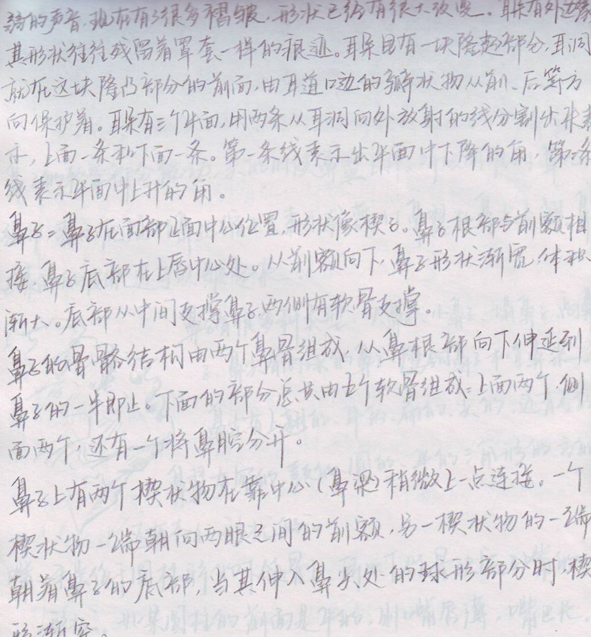 弱的声音,现在有了很多褶皱,形状已经有很大改变。耳朵有外边缘
其形状往往残留着罩套一样的痕迹。耳朵且有一块隆起部分,耳洞
就在这块隆凸部分的前面,由耳道口边的 状物从前、后等方
向保护着。耳朵有三个平面,用两条从耳洞向外放射的线分割出来表
示,上面一条和下面一条。第一条线表示出平面中下降的角,第二条
线表示平面中上升的角。
鼻子=鼻子在面部正面中心位置,形状像楔子。鼻子根部与前额相
接,鼻子底部在上唇中心处。从前额向下,鼻子形状渐宽,体积
渐大。底部从中间支撑鼻子,两侧有软骨支撑。
鼻子的骨骼结构由两个鼻骨组成,从鼻根部向下伸延到
鼻子的一半即止。下面的部分总共由五个软骨组成:上面两个,侧
面两个,还有一个将鼻腔分开。
鼻子上有两个楔状物在靠中心(鼻梁)稍微上一点连接。一个
楔状物一端朝向两眼之间的前额,另一楔状物的一端
朝着鼻子的底部,当其伸入鼻尖处的球形部分时,楔
形渐窄。